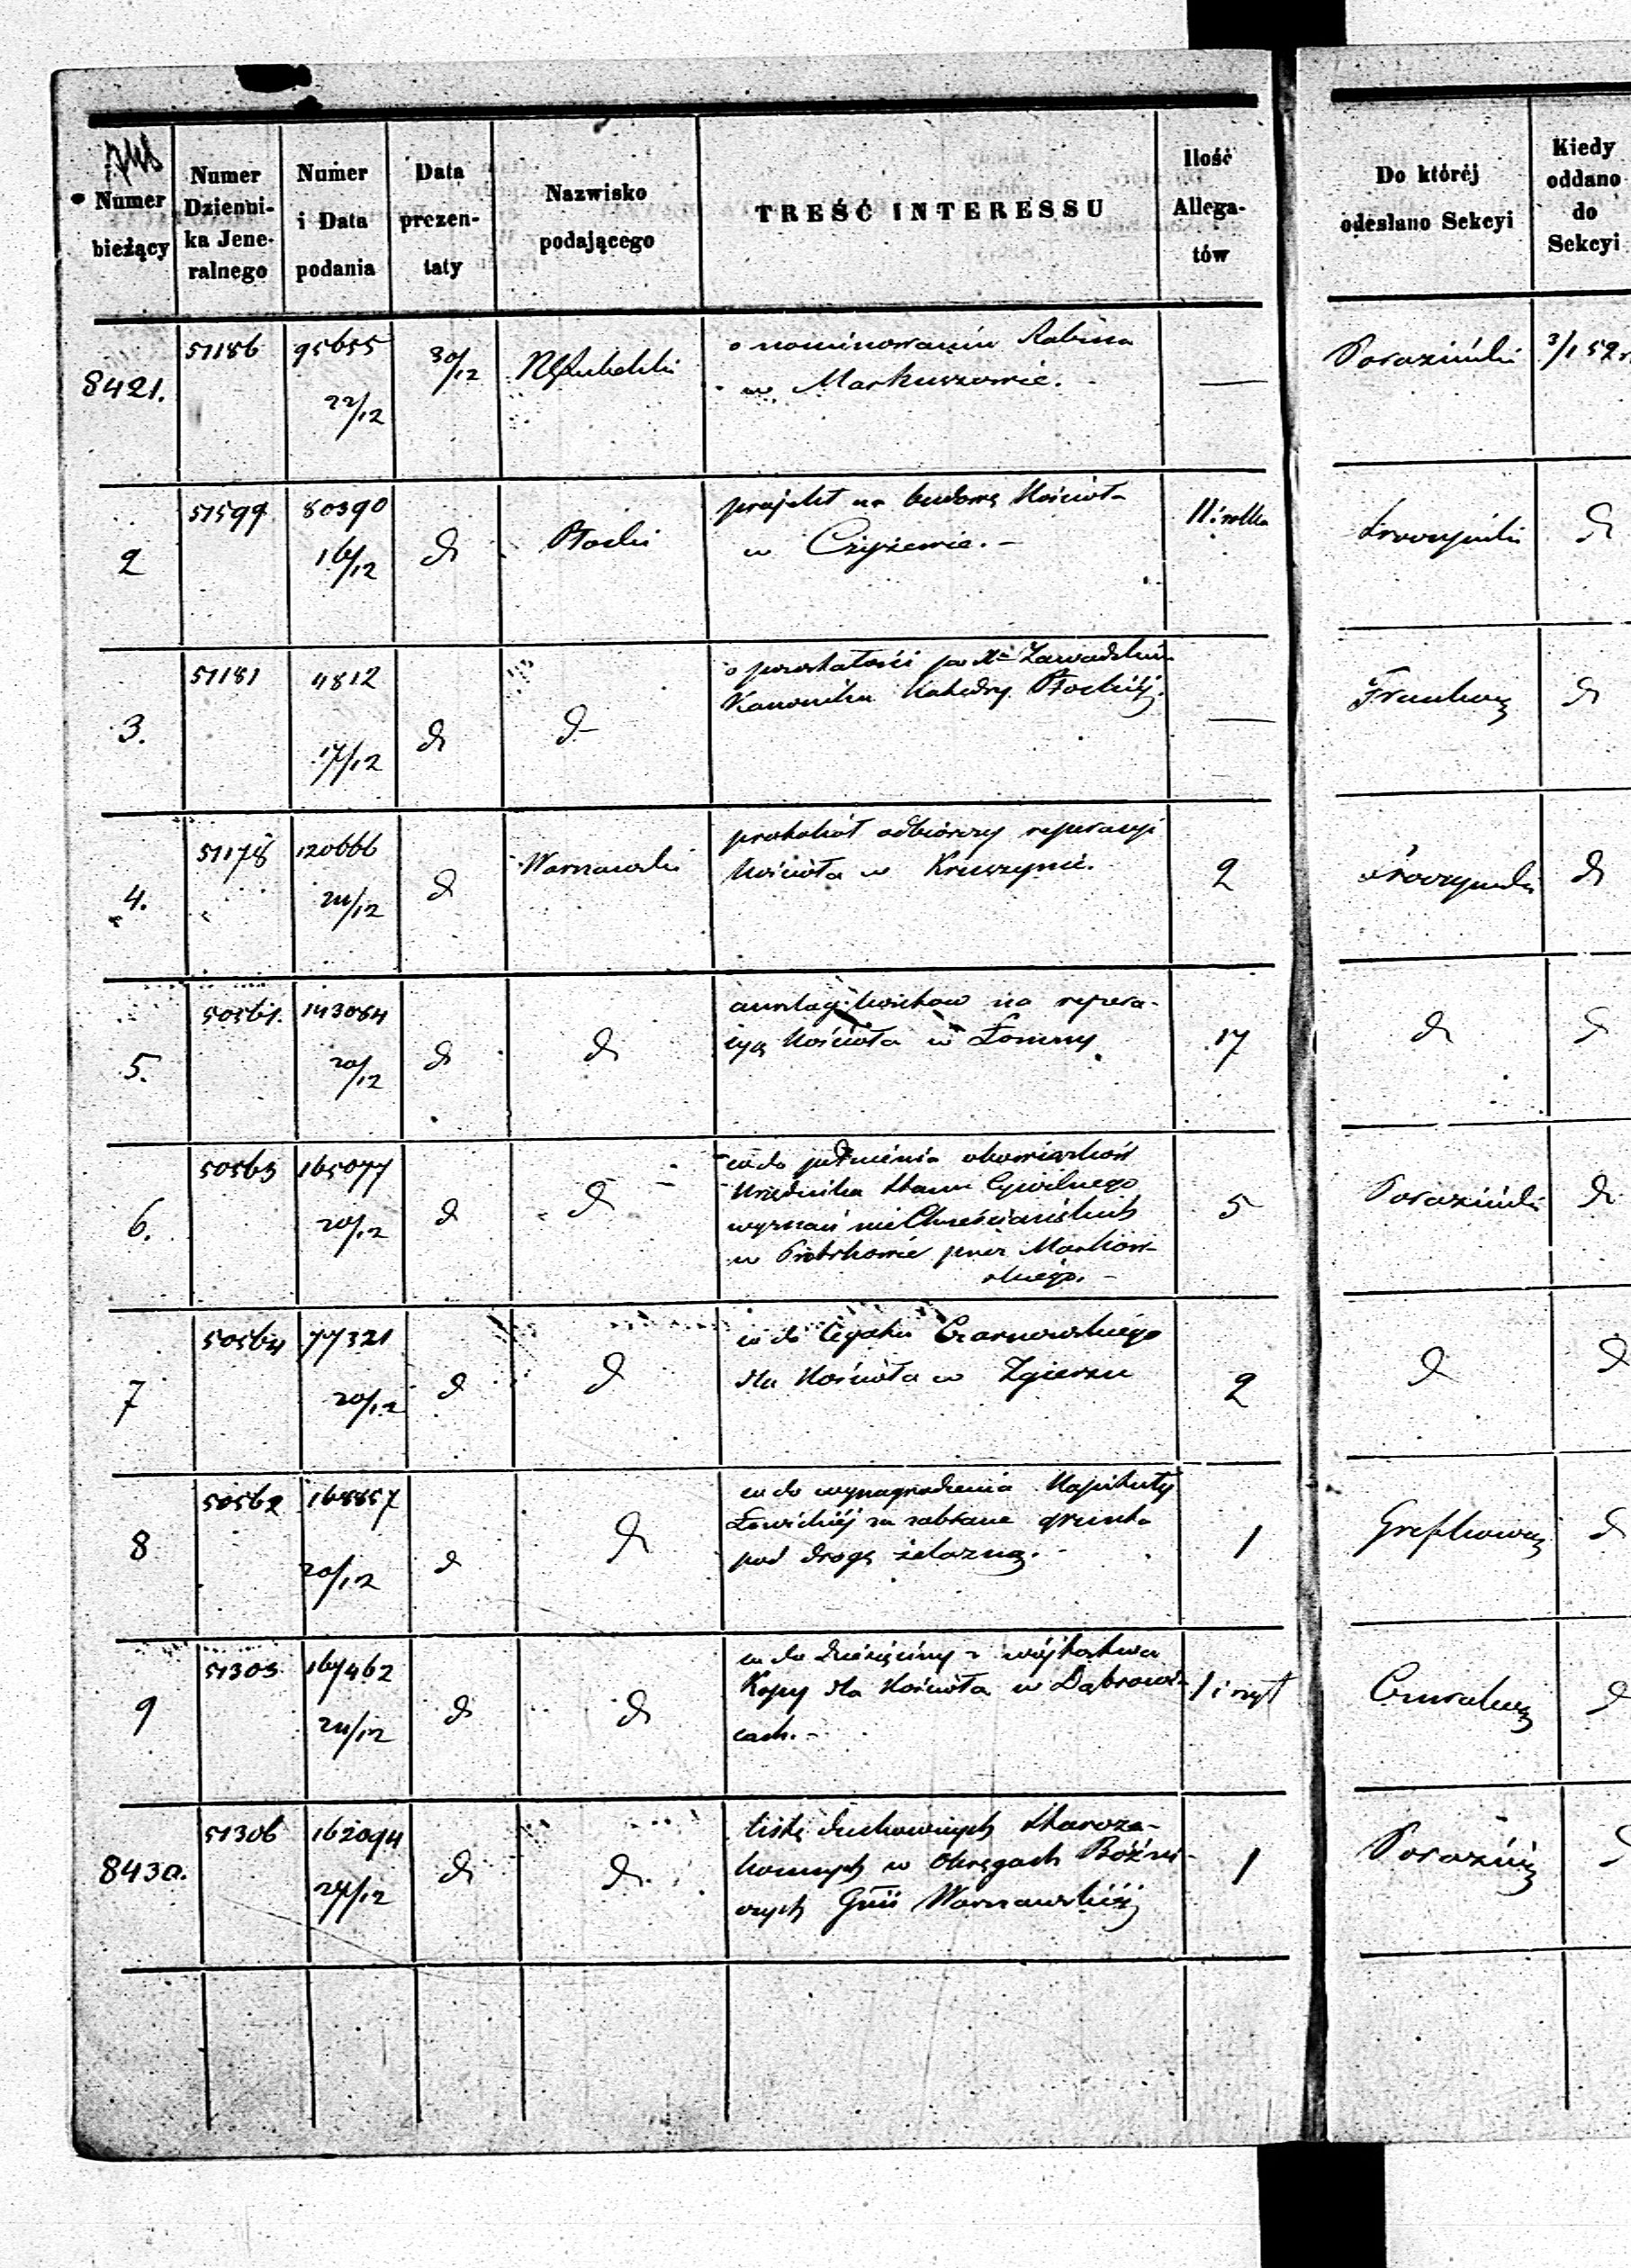 Numer
bieżący
Numer
Dzienni-
ka Jene-
ralnego
Numer
i Data
podania
Data
prezen-
taty
Nazwisko
podającego
TREŚĆ INTERESSU
Ilość
Allega-
tów
Do któréj
odesłano Sekcyi
Kiedy
oddano
do
Sekcyi
8421.
51186
95655
22/12
30/12
RGLubelski
o nominowaniu Rabina
w Markuszowie.
—
3/1 52
2
51599
80390
16/12
d
Płocki
projekt na budowę Kościoła
w Czyżewie. –
11. i rolka
d
3.
51181
4812
17/12
d
d
o pozostałości po Xe Zawadzkim
Kanoniku Katedry Płockiéj.
—
d
4.
51178
120666
21/12
d
Warszawski
protokół odbiorczy reperacyi
Kościoła w Kruszynie.
2
d
5.
143084
20/12
d
d
na repera-
cyą Kościoła w Łomny
17
d
d
6.
50563
165077
20/12
d
d
co do pełnienia obowiązków
Urzędnika Stanu Cywilnego
wyznań nieChrześciańskich
w Piotrkowie przez Markow-
skiego. –
5
d
7
50564
77321
20/12
d
d
co do legatu Czarnowskiego
dla Kościoła w Zgierzu
2
d
d
8
50562
168857
20/12
d
d
co do wynagrodzenia Kapituły
Łowickiéj za zabrane grunta
pod drogę żelazną. –
1
d
9
51305
167462
21/12
d
d
co do dziesięciny z wójtostwa
Kopy dla Kościoła w Dąbrowi-
cach. –
1 i szyt
d
8430.
51306
162094
24/12
d
d.
listę duchownych Staroza-
konnych w Okręgach Bóźni-
czych Gnii Warszawskiéj
1
d